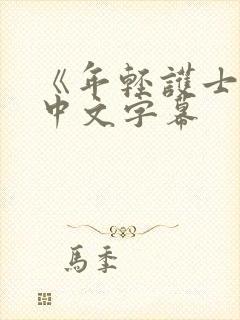 《年輕護士
中文字幕
馬季